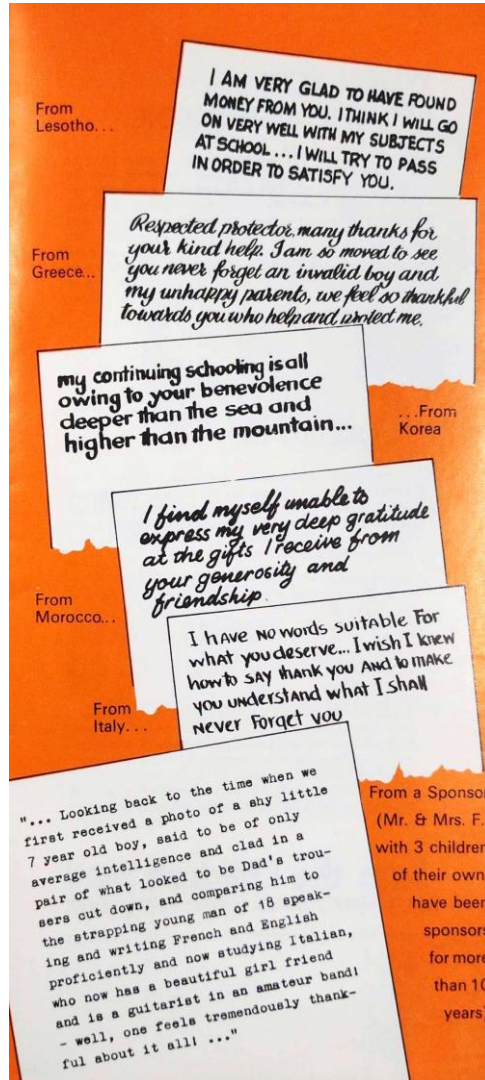 From
Lesotho...
I AM VERY GLAD TO HAVE FOUND
MONEY FROM YOU. I THINK I WILL GO
ON VERY WELL WITH MY SUBJECTS
AT SCHOOL... I WILL TRY TO PASS
IN ORDER TO SATISFY YOU.
From
Greece...
Respected protector, many thanks for
your kind help. I am so moved to see
you never forget an invalid boy and
my unhappy parents, we feel so thankful
towards you who help and protect me.
my continuing schooling is all
owing to your benevolence
deeper than the sea and
higher than the mountain...
...From
Korea
From
Morocco...
I find myself unable to
express my very deep gratitude
at the gifts I receive from
your generosity and
friendship.
From
Italy...
I HAVE NO WORDS SUITABLE FOR
WHAT YOU DESERVE... I WISH I KNEW
HOW TO SAY THANK YOU AND to MAKE
YOU UNDERSTAND WHAT I SHALL
NEVER FORGET YOU
"... Looking back to the time when we
first received a photo of a shy little
7 year old boy, said to be of only
average intelligence and clad in a
pair of what looked to be Dad's trou-
sers cut down, and comparing him to
the strapping young man of 18 speak-
ing and writing French and English
proficiently and now studying Italian,
who now has a beautiful girl friend
and is a guitarist in an amateur band!
- well, one feels tremendously thank-
ful about it all! ..."
From a Sponsor
(Mr. & Mrs. F.
with 3 children
of their own
have been
sponsors
for more
than 10
years)